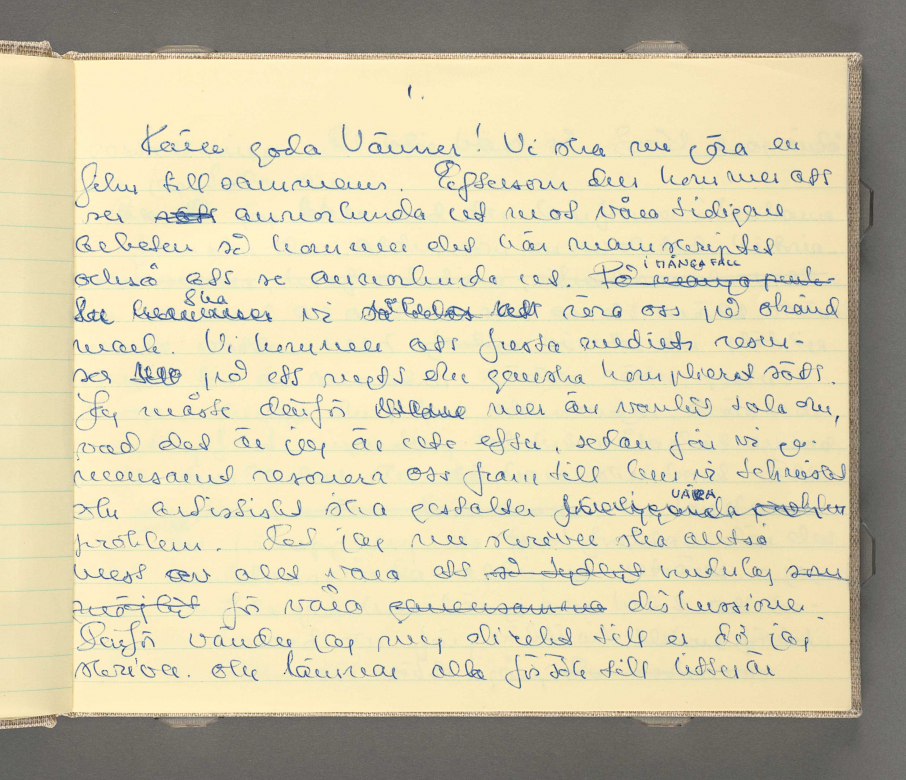 1.
Kära goda Vänner! Vi ska nu göra en
film tillsammans. Eftersom den kommer att
se annorlunda ut mot våra tidigare
arbeten så kommer det här manuskriptet
också att se annorlunda ut. På många punk-
I MÅNGA FALL
ska
ter kommer vi således att röra oss på okänd
mark. Vi kommer att fresta mediets resur-
ser på ett nytt och ganska komplicerat sätt.
Jag måste därför mer än vanligt tala om,
vad det är jag är ute efter, sedan får vi ge-
mensamt resonera oss fram till hur vi tekniskt
och artistiskt ska gestalta föreliggande problem
VÅRA
problem. Det jag nu skriver ska alltså
mest av allt vara ett så tydligt underlag som
möjligt för våra gemensamma diskussioner
Därför vänder jag mig direkt till er då jag
skriver och lämnar alla försök till litterär